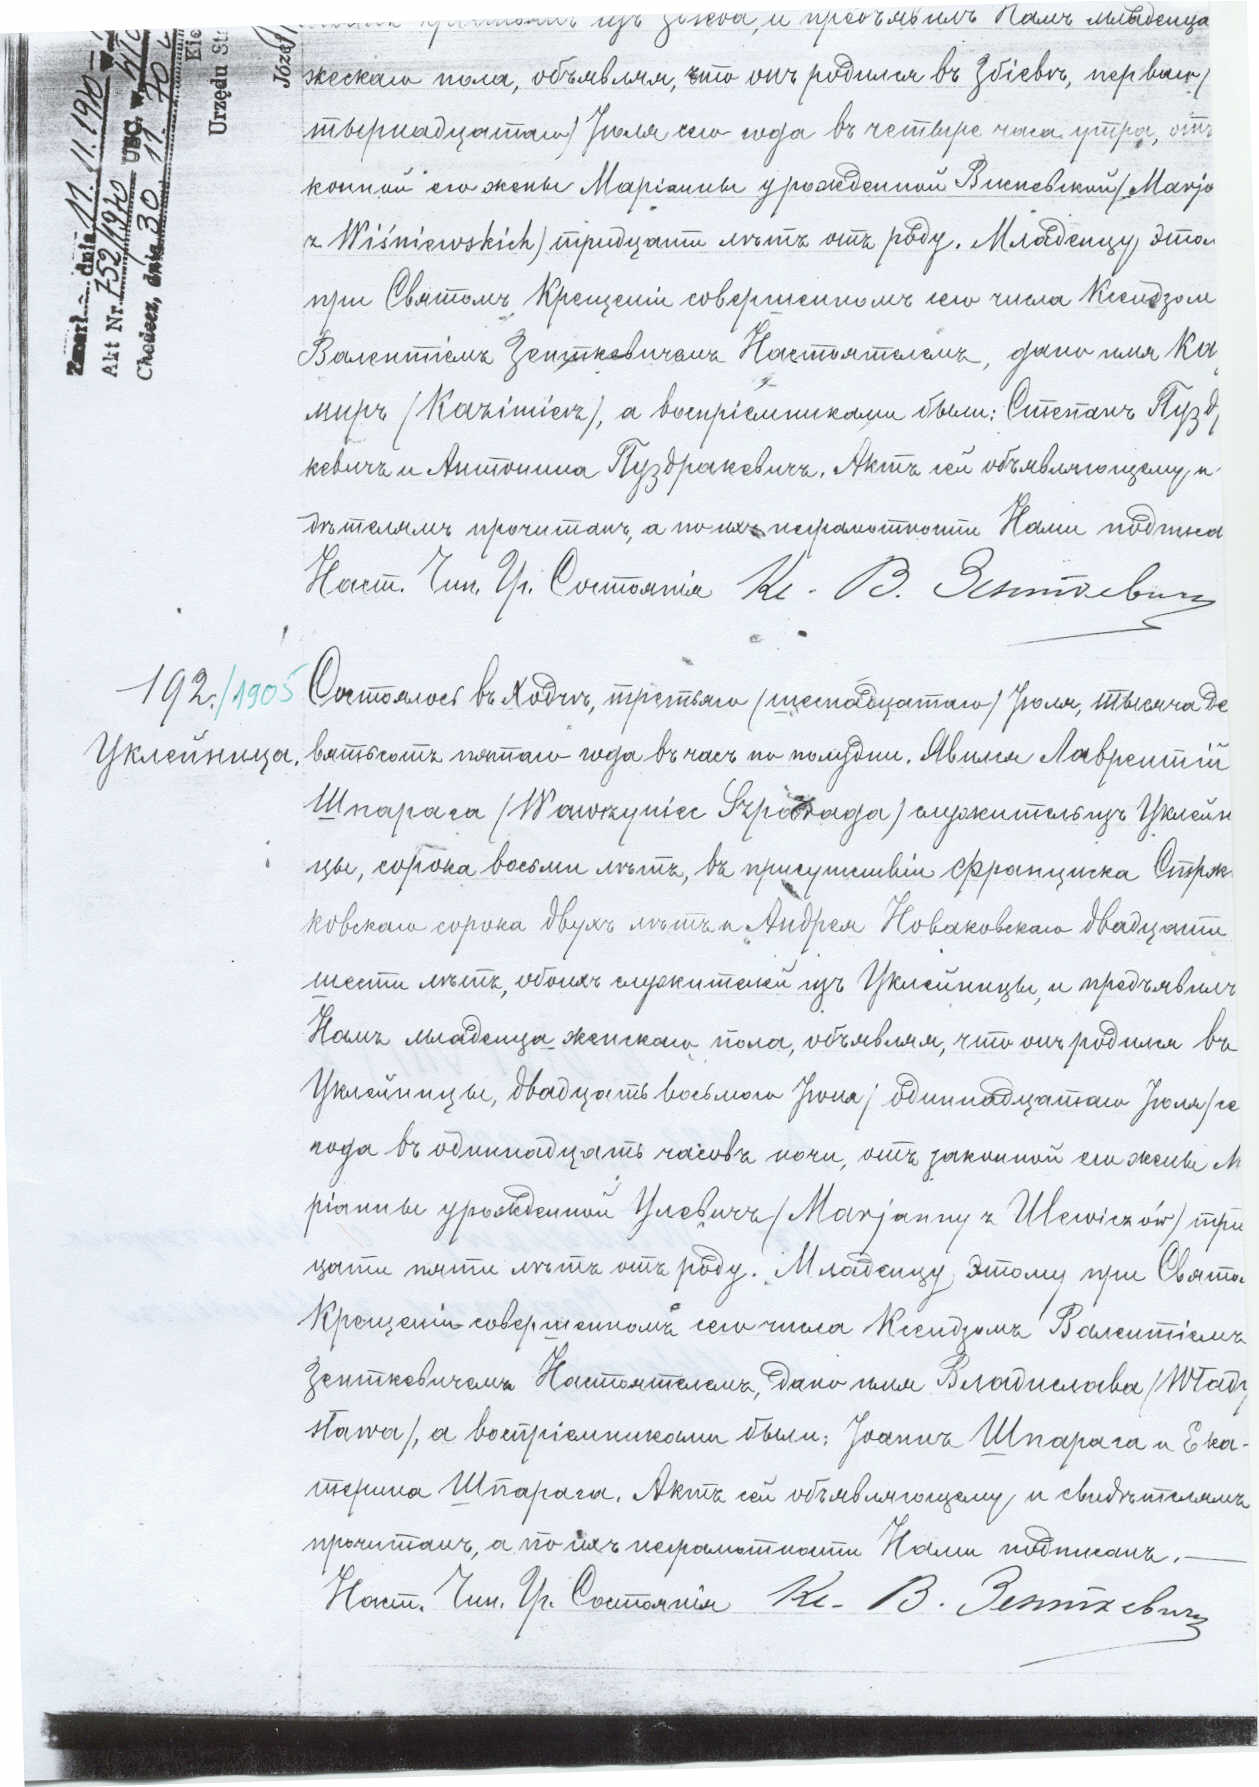 Zmarł dnia 17.11.1970
Akt Nr. 752/1970 USC w
Chodecz, dnia 30 11. 70
Kie
Urzędu St
Józef
изъ и предъявилъ Намъ младенца
жескаго пола, объявляя, что онъ родился въ Збіевѣ, перваго/
тырнадцатаго/ Іюля сего года въ четыре часа утра, отъ
конной его жены Маріанны урожденной Висневской/Marja
z Wiśniewskich/ тридцати лѣтъ отъ роду. Младенцу этом
при Святомъ Крещеніи совершенномъ сего числа Ксендзом
Валентіемъ Зенткевичемъ Настоятелемъ, дано имя Ка
миръ /Kazimierz/, а воспріемниками были: Степанъ Пузд
кевичъ и Антонина Пуздракевичъ. Актъ сей объявляющему и
дѣтелямъ прочитанъ, а по ихъ неграмотности Нами подписа
Наст. Чин. Гр. Состоянія Кс. В. Зенткевичъ
192./1905
Уклейница.
Состоялось въ Ходчѣ, третьяго /шестнадцатаго/ Іюля, тысяча де
вятьсотъ пятаго года въ часъ по полудни. Явился Лаврентій
Шпарага /Wawrzyniec Szparaga/ служитель изъ Уклейн
цы, сорока восьми лѣтъ, въ присутствіи Франциска Стрж
ковскаго сорока двухъ лѣтъ и Андрея Новаковскаго двадцати
шести лѣтъ, обоихъ служителей изъ Уклейницы, и предъявилъ
Намъ младенца женскаго пола, объявляя, что онъ родился въ
Уклейницы, двадцать восьмого Іюня/ одиннадцатаго Іюля/ се
года въ одиннадцать часовъ ночи, отъ законной его жены М
ріанны урожденной Улевичъ /Marjanny z Ulewiczów/ три
цати пяти лѣтъ отъ роду. Младенцу этому при Свято
Крещеніи совершенномъ сего числа Ксендзомъ Валентіемъ
Зенткевичемъ Настоятелемъ, дано имя Владислава /Włady
sława/, а воспріемниками были: Іоаннъ Шпарага и Ека-
терина Шпарага. Актъ сей объявляющему и свидѣтелямъ
прочитанъ, а по ихъ неграмотности Нами подписанъ.—
Наст. Чин. Гр. Состоянія Кс. В. Зенткевичъ